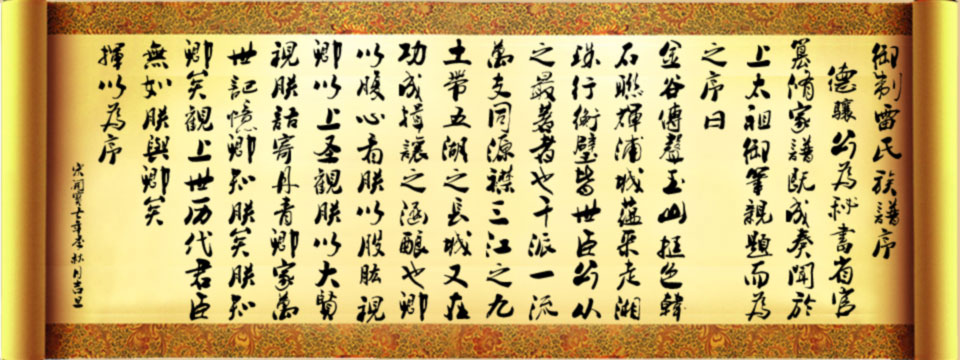 御制雷氏族譜序
德驤公為秘書省官
纂脩家譜既成奏聞於
上太祖御筆親題而為
之序曰
金谷傳聲玉山挺色韓
石聯輝浦城蘊采走湘
珠行衡璧皆世臣公从
之最著者也千派一流
萬支同源襟三江之九
土帶五湖之長城又在
功成揖讓之涵釀也卿
以腹心看朕以股肱視
卿以上圣觀朕以大賢
視朕語寄丹青卿家萬
世記憶卿知朕矣朕知
卿矣觀上世历代君臣
無如朕與卿矣
揮以為序
宋開寶七年李林月吉旦